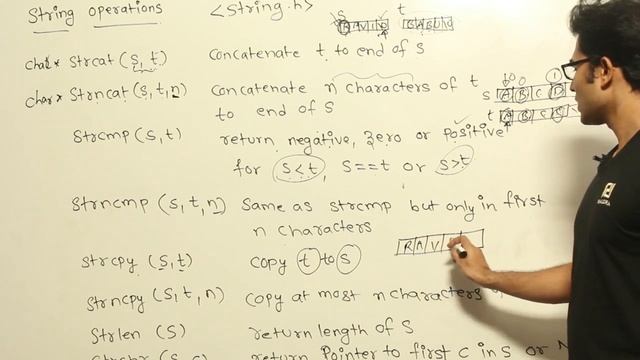 String operations <string.h> s t
char* Strcat (s, t) Concatenate t to end of S
char* Strncat (s, t, n) Concatenate n characters of t
to end of S
Strcmp (s, t) return negative, zero or positive
for s<t, s==t or s>t
Strncmp (s, t, n) Same as strcmp but only in first
n characters
strcpy (s, t) copy t to s
RAV
strncpy (s, t, n) copy at most n characters
Strlen (S) return length of S
return Pointer to first c in s or